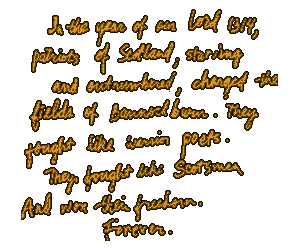 In the year of our Lord 1314,
patriots of Scotland, starving
and outnumbered, charged the
fields of Bannockburn. They
fought like warrior poets.
They fought like Scotsmen,
And won their freedom.
Forever.